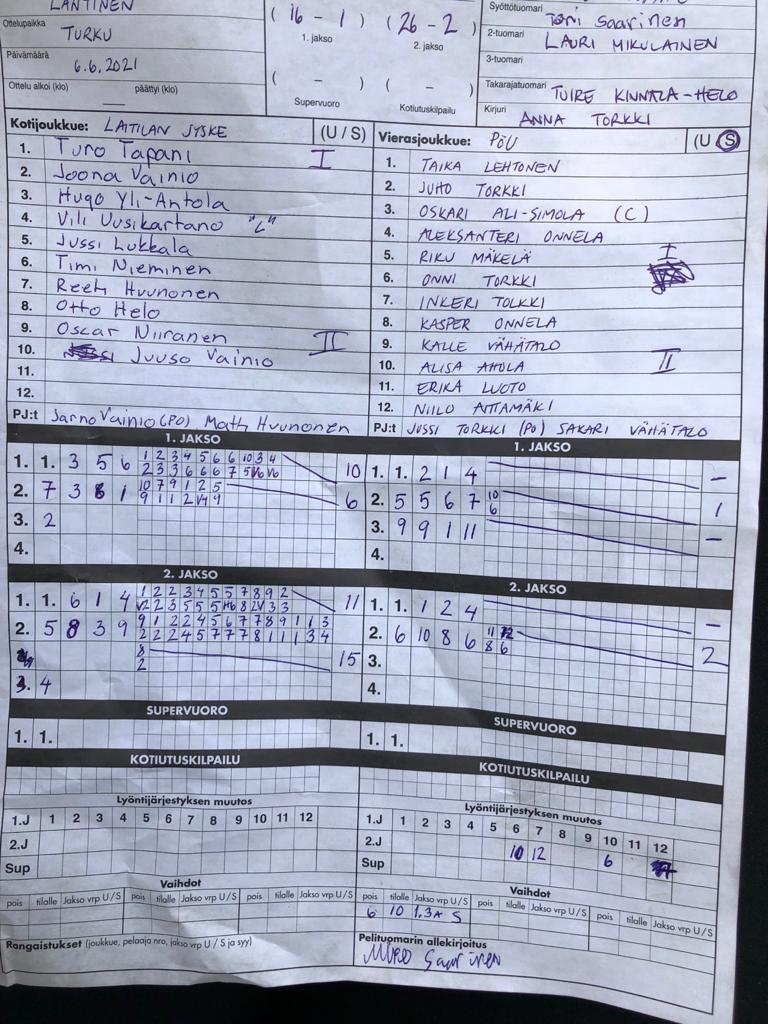 LÄNTINEN
Ottelupaikka
TURKU
Päivämäärä
6.6.2021
Ottelu alkoi (klo) päättyi (klo)
(16 - 1) (26 - 2)
1. jakso 2. jakso
( - ) ( - )
Supervuoro Kotiutuskilpailu
Syöttötuomari Toni Saarinen
2-tuomari LAURI MIKULAINEN
3-tuomari
Takarajatuomari TUIRE KINNALA-HELO
Kirjuri ANNA TORKKI
Kotijoukkue: LAITILAN JYSKE (U / S)
1. Turo Tapani I
2. Joona Vainio
3. Hugo Yli-Antola
4. Vili Uusikartano "C"
5. Jussi Lukkala
6. Timi Nieminen
7. Reeti Huunonen
8. Otto Helo
9. Oscar Niiranen II
10. Juuso Vainio
11.
12.
PJ:t Jarno Vainio (PO) Math Huunonen
Vierasjoukkue: PöU (U S)
1. TAIKA LEHTONEN
2. JUHO TORKKI
3. OSKARI ALI-SIMOLA (C)
4. ALEKSANTERI ONNELA
5. RIKU MÄKELÄ I
6. ONNI TORKKI
7. INKERI TOLKKI
8. KASPER ONNELA
9. KALLE VÄHÄTALO
10. ALISA AHOLA II
11. ERIKA LUOTO
12. NIILO AITTAMÄKI
PJ:t JUSSI TORKKI (PO) SAKARI VÄHÄTALO
1. JAKSO
1. 1. 3 5 6 1 2 3 4 5 6 6 10 3 4 10
2 3 3 6 6 6 7 5 V6 V6
2. 7 3 8 1 10 7 9 1 2 5 6
9 1 1 2 V4 9
3. 2
4.
1. JAKSO
1. 1. 2 1 4 -
2. 5 5 6 7 10 1
6
3. 9 9 1 11 -
4.
2. JAKSO
1. 1. 6 1 4 1 2 2 3 4 5 5 7 8 9 2 11
V2 2 3 5 5 5 H6 8 2V 3 3
2. 5 8 3 9 9 1 2 2 4 5 6 7 7 8 9 1 1 3
2 2 2 4 5 7 7 7 8 1 1 1 3 4
8 15
2
3. 4
2. JAKSO
1. 1. 1 2 4 -
2. 6 10 8 6 11 12 2
8 6
3.
4.
SUPERVUORO
1. 1.
KOTIUTUSKILPAILU
SUPERVUORO
1. 1.
KOTIUTUSKILPAILU
Lyöntijärjestyksen muutos
1.J 1 2 3 4 5 6 7 8 9 10 11 12
2.J
Sup
Vaihdot
pois tilalle Jakso vrp U/S pois tilalle Jakso vrp U/S pois tilalle Jakso vrp U/S
Rangaistukset (joukkue, pelaaja nro, jakso vrp U / S ja syy)
Lyöntijärjestyksen muutos
1.J 1 2 3 4 5 6 7 8 9 10 11 12
2.J 10 12 6
Sup
Vaihdot
pois tilalle Jakso vrp U/S pois tilalle Jakso vrp U/S pois tilalle Jakso vrp U/S
6 10 1.3A S
Pelituomarin allekirjoitus
Saarinen